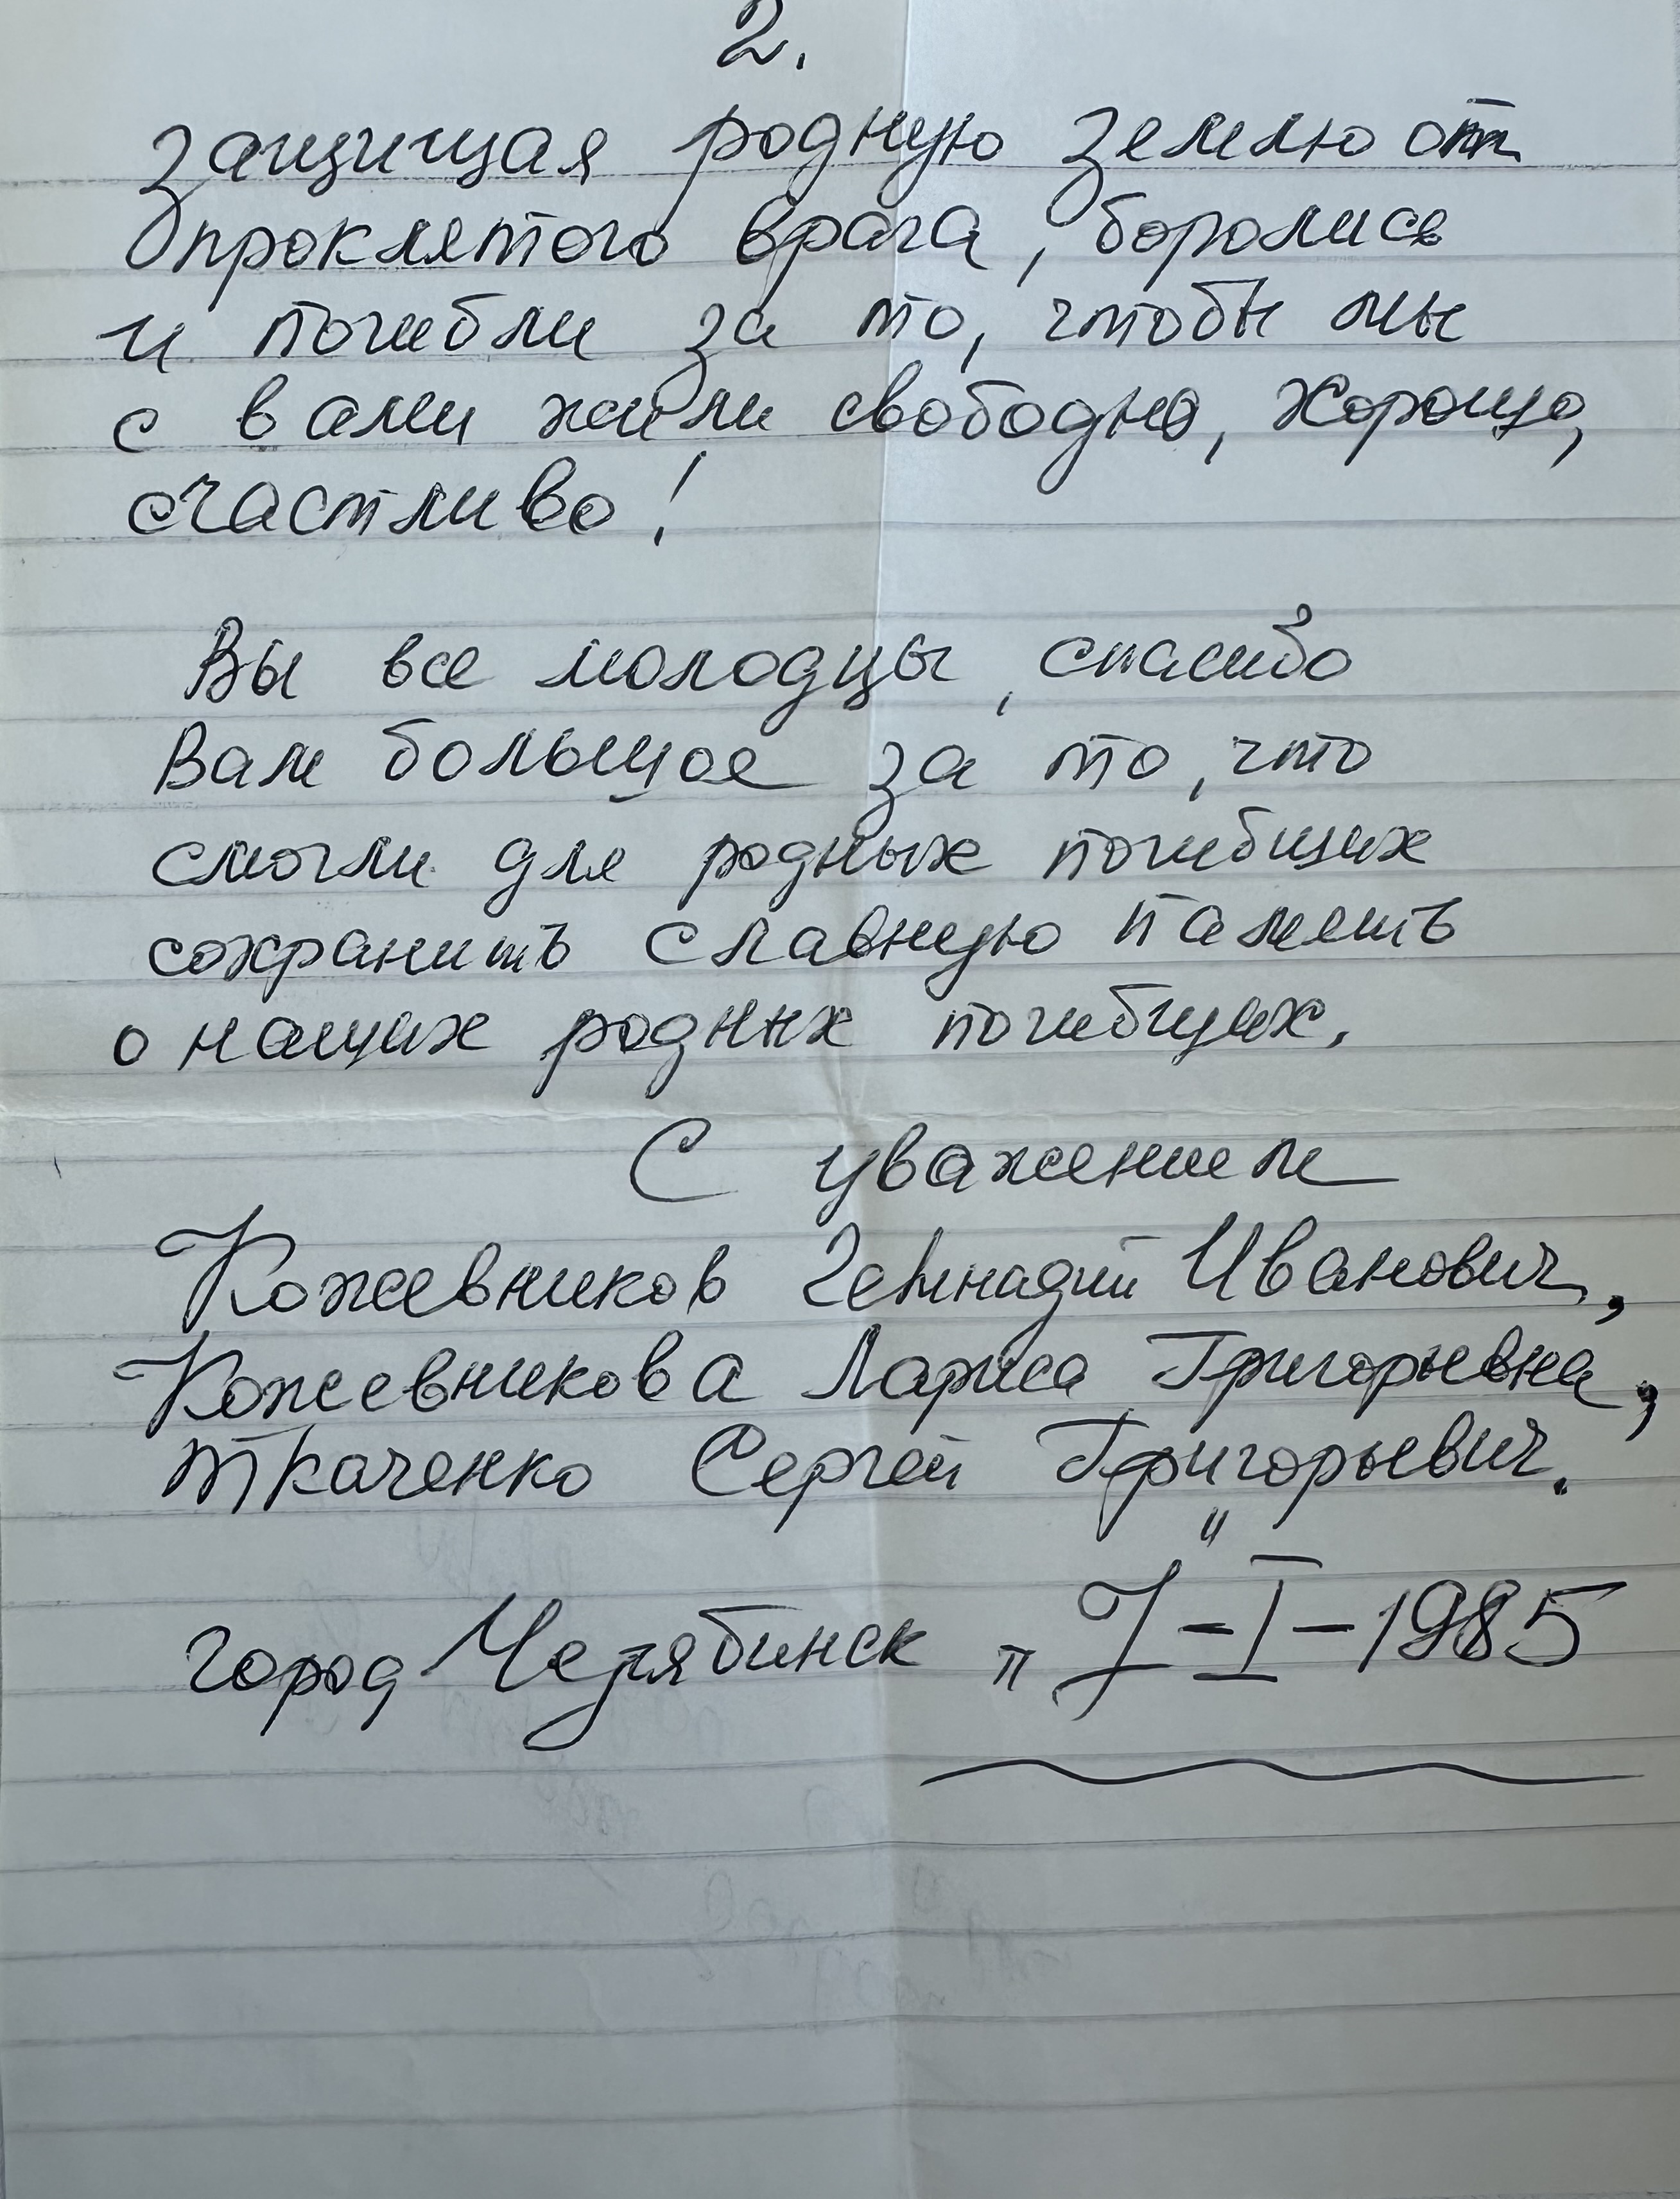 2.
защищая родную землю от
проклятого врага, боролись
и погибли за то, чтобы мы
с вами жили свободно, хорошо,
счастливо!
Вы все молодцы, спасибо
Вам большое за то, что
смогли для родных погибших
сохранить славную память
о наших родных погибших.
С уважением
Кожевников Геннадий Иванович,
Кожевникова Лариса Григорьевна,
Ткаченко Сергей Григорьевич.
город Челябинск „7"-I-1985